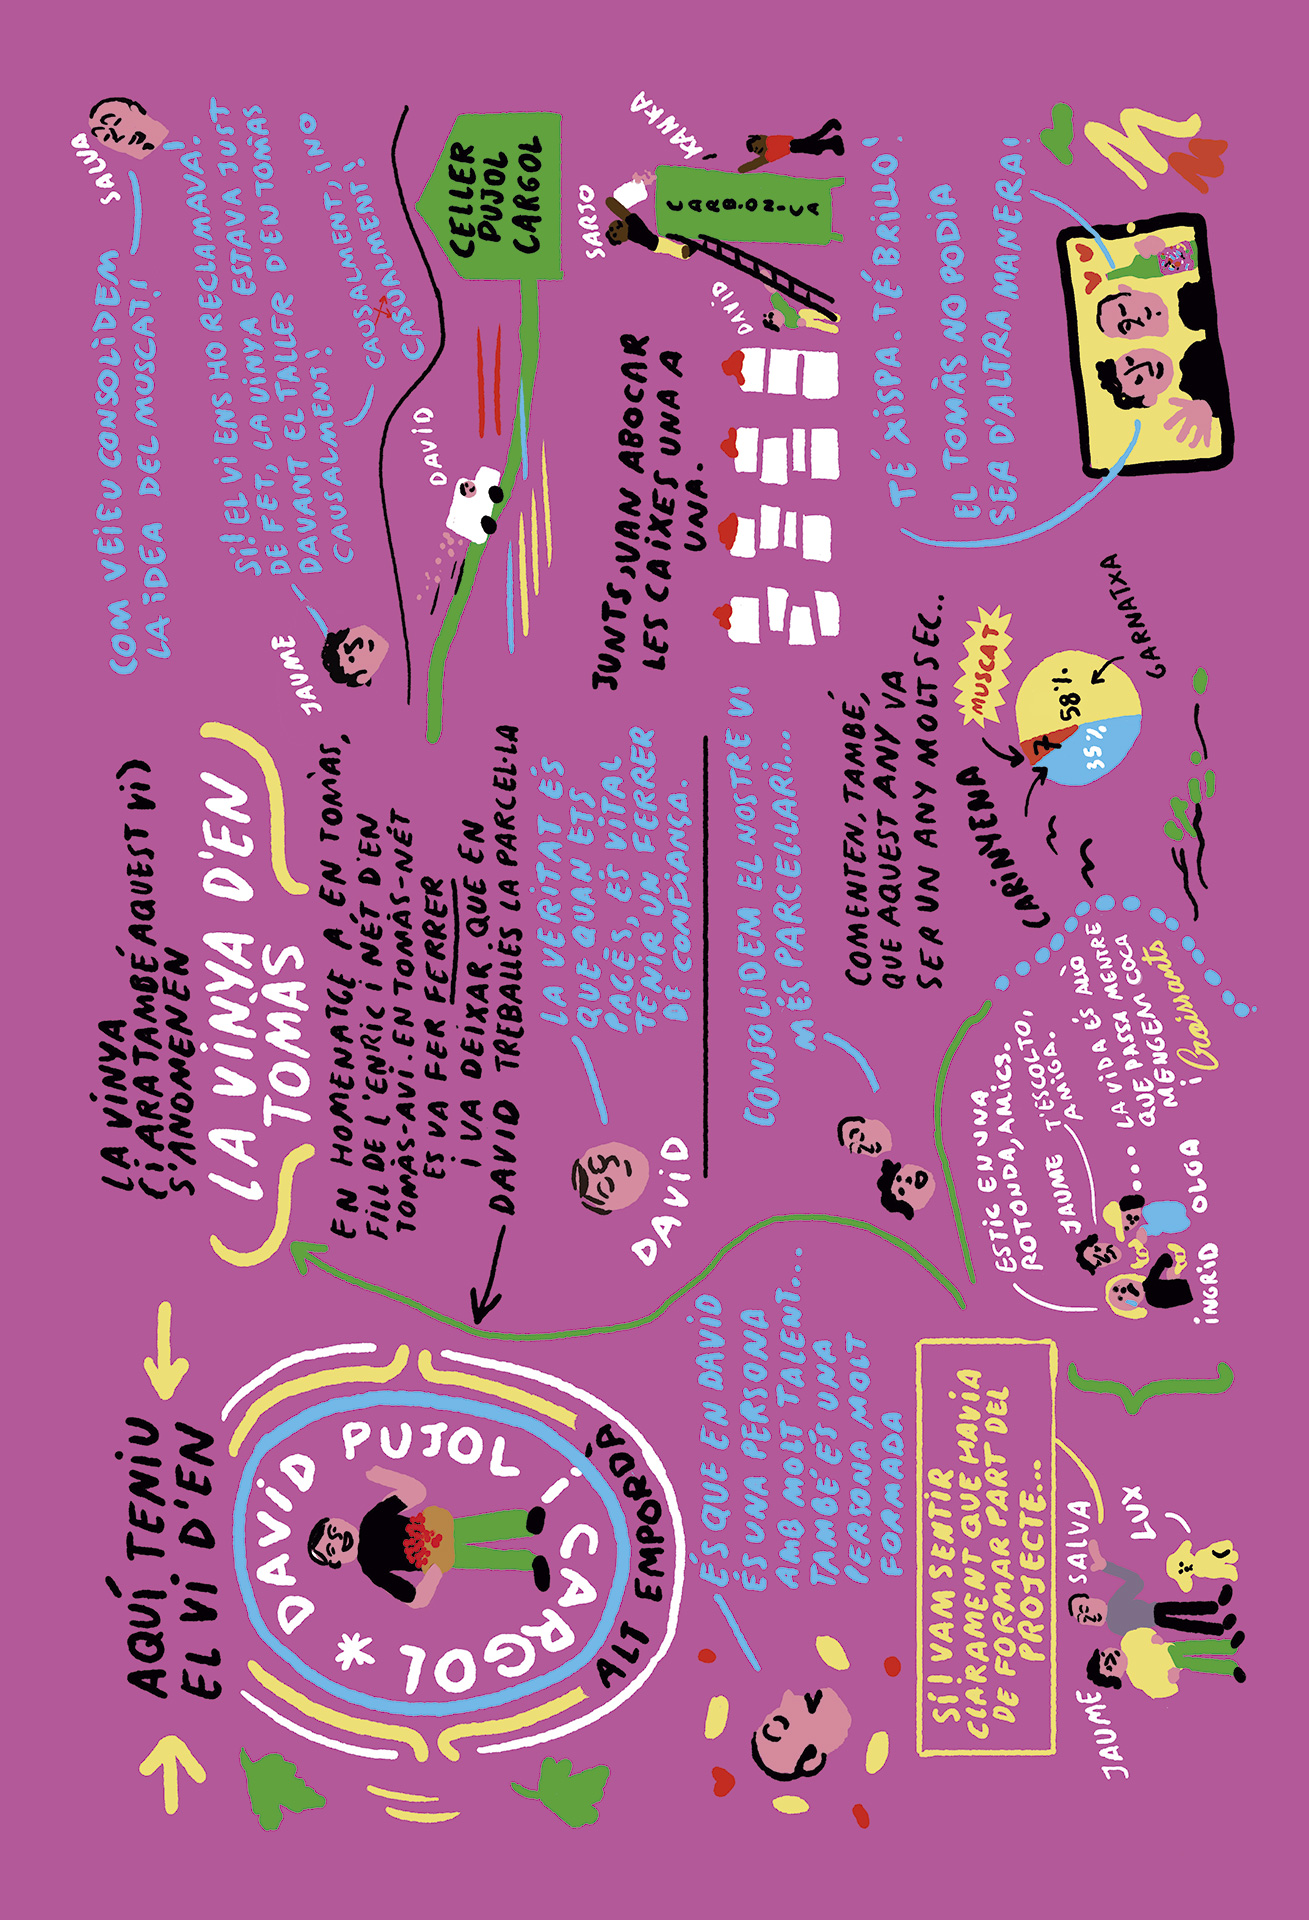 AQUÍ TENIU
EL VI D'EN
DAVID PUJOL i CARGOL *
ALT EMPORDÀ
ÉS QUE EN DAVID
ÉS UNA PERSONA
AMB MOLT TALENT...
TAMBÉ ÉS UNA
PERSONA MOLT
FORMADA
SÍ! VAM SENTIR
CLARAMENT QUE HAVIA
DE FORMAR PART DEL
PROJECTE...
JAUME
SALVA
LUX
LA VINYA
(i ARA TAMBÉ AQUEST Vi)
S'ANOMENEN
LA VINYA D'EN
TOMÀS
EN HOMENATGE A EN TOMÀS,
FILL DE L'ENRIC i NÉT D'EN
TOMÀS-AVI. EN TOMÀS-NÉT
ES VA FER FERRER
i VA DEIXAR QUE EN
DAVID TREBALLÉS LA PARCEL·LA
LA VERITAT ÉS
QUE QUAN ETS
PAGÈS, ES VITAL
TENIR UN FERRER
DE CONFIANÇA.
DAVID
CONSOLIDEM EL NOSTRE VI
MÉS PARCEL·LARI...
COMENTEN, TAMBÉ,
QUE AQUEST ANY VA
SER UN ANY MOLT SEC..
CARINYENA
MUSCAT
7
58%
35%
GARNATXA
ESTIC EN UNA
ROTONDA, AMICS.
JAUME T'ESCOLTO,
AMIGA.
... LA VIDA ÉS ALLÒ
QUE PASSA MENTRE
MENGEM COCA
i Croissants
INGRID
OLGA
SALVA
COM VEIEU CONSOLIDEM
LA IDEA DEL MUSCAT!
JAUME
SÍ! EL VI ENS HO RECLAMAVA!
DE FET, LA VINYA ESTAVA JUST
DAVANT EL TALLER D'EN TOMÀS
CAUSALMENT!
CAUSALMENT, i NO
CASUALMENT!
DAVID
CELLER
PUJOL
CARGOL
JUNTS, VAN ABOCAR
LES CAIXES UNA A
UNA.
DAVID
SARJO
KANKA
CARBÒNICA
TÉ XISPA. TÉ BRILLO!
EL TOMÀS NO PODIA
SER D'ALTRA MANERA!